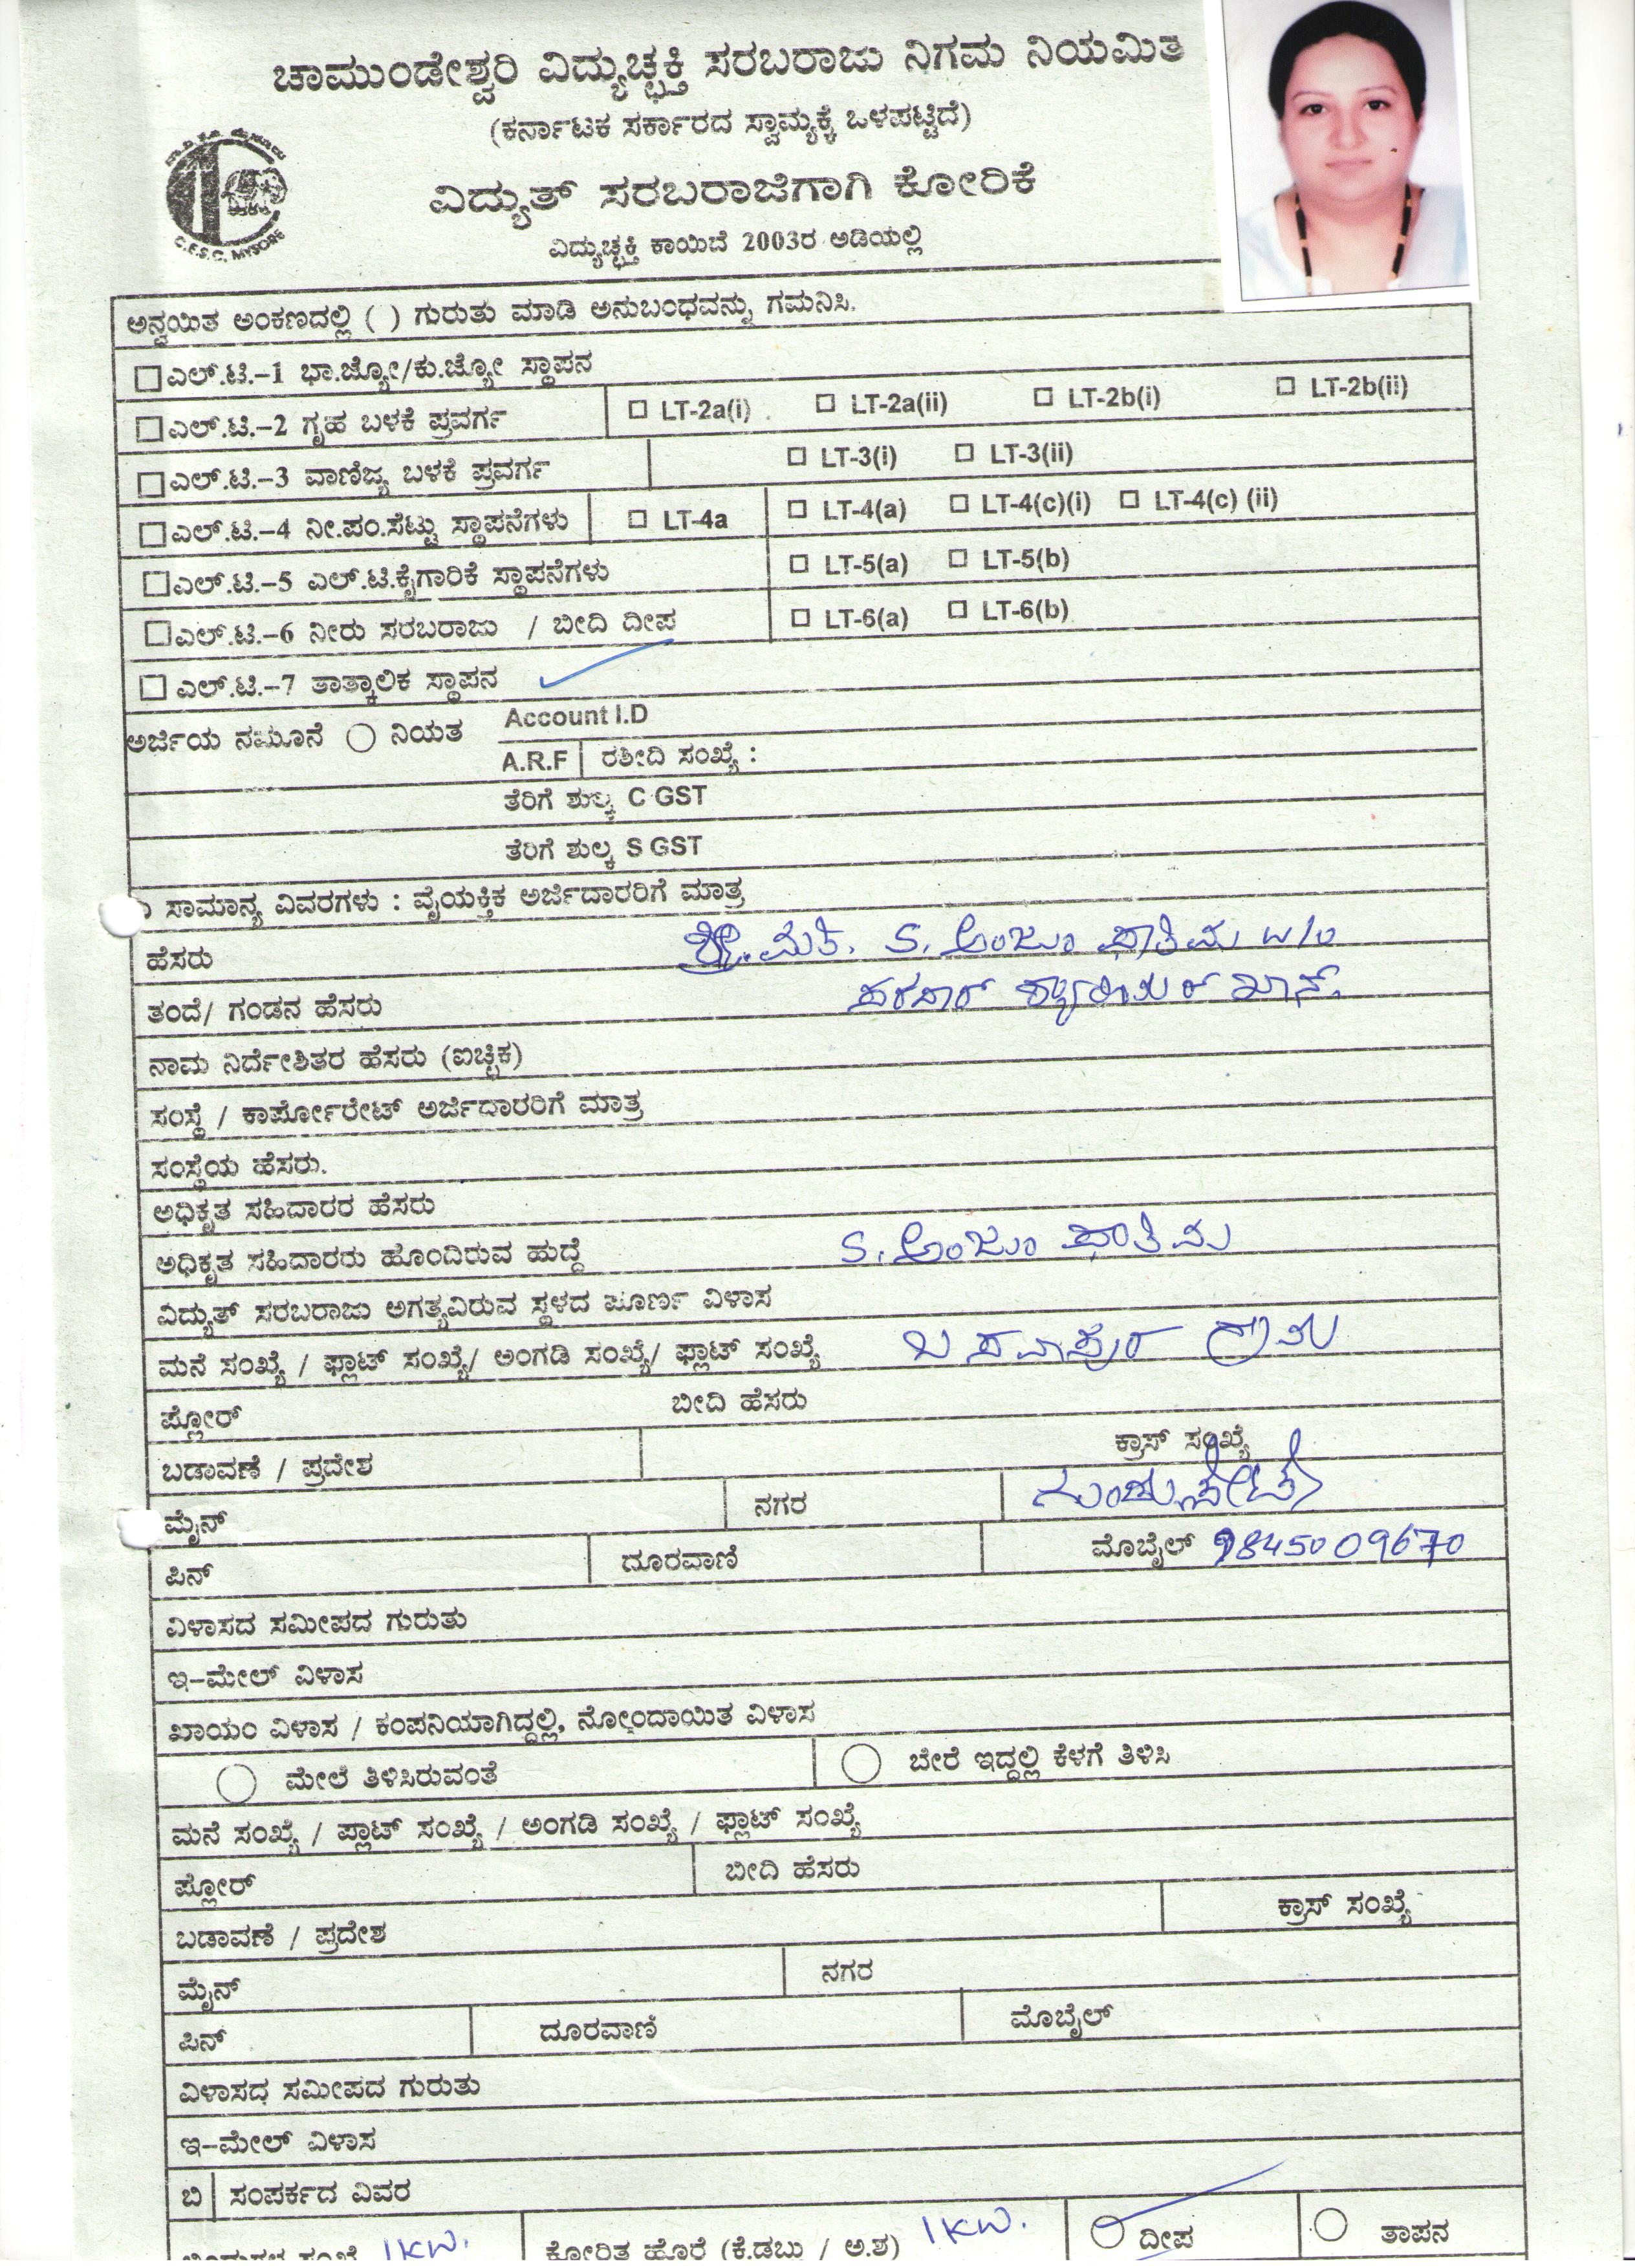 ಚಾಮುಂಡೇಶ್ವರಿ ವಿದ್ಯುಚ್ಛಕ್ತಿ ಸರಬರಾಜು ನಿಗಮ ನಿಯಮಿತ
(ಕರ್ನಾಟಕ ಸರ್ಕಾರದ ಸ್ವಾಮ್ಯಕ್ಕೆ ಒಳಪಟ್ಟಿದೆ)
C.E.S.C. MYSORE
ವಿದ್ಯುತ್ ಸರಬರಾಜಿಗಾಗಿ ಕೋರಿಕೆ
ವಿದ್ಯುಚ್ಛಕ್ತಿ ಕಾಯಿದೆ 2003ರ ಅಡಿಯಲ್ಲಿ
ಅನ್ವಯಿತ ಅಂಕಣದಲ್ಲಿ ( ) ಗುರುತು ಮಾಡಿ ಅನುಬಂಧವನ್ನು ಗಮನಿಸಿ.
ಎಲ್.ಟಿ.-1 ಭಾ.ಜ್ಯೋ/ಕು.ಜ್ಯೋ ಸ್ಥಾಪನ
ಎಲ್.ಟಿ.-2 ಗೃಹ ಬಳಕೆ ಪ್ರವರ್ಗ LT-2a(i) LT-2a(ii) LT-2b(i) LT-2b(ii)
ಎಲ್.ಟಿ.-3 ವಾಣಿಜ್ಯ ಬಳಕೆ ಪ್ರವರ್ಗ LT-3(i) LT-3(ii)
ಎಲ್.ಟಿ.-4 ನೀ.ಪಂ.ಸೆಟ್ಟು ಸ್ಥಾಪನೆಗಳು LT-4a LT-4(a) LT-4(c)(i) LT-4(c) (ii)
ಎಲ್.ಟಿ.-5 ಎಲ್.ಟಿ.ಕೈಗಾರಿಕೆ ಸ್ಥಾಪನೆಗಳು LT-5(a) LT-5(b)
ಎಲ್.ಟಿ.-6 ನೀರು ಸರಬರಾಜು / ಬೀದಿ ದೀಪ LT-6(a) LT-6(b)
ಎಲ್.ಟಿ.-7 ತಾತ್ಕಾಲಿಕ ಸ್ಥಾಪನ
ಅರ್ಜಿಯ ನಮೂನೆ ನಿಯತ Account I.D
A.R.F ರಶೀದಿ ಸಂಖ್ಯೆ :
ತೆರಿಗೆ ಶುಲ್ಕ C GST
ತೆರಿಗೆ ಶುಲ್ಕ S GST
ಸಾಮಾನ್ಯ ವಿವರಗಳು : ವೈಯಕ್ತಿಕ ಅರ್ಜಿದಾರರಿಗೆ ಮಾತ್ರ
ಹೆಸರು ಶ್ರೀ.ಮತಿ. S. ಅಂಜೂ ಫಾತಿಮ W/O
ತಂದೆ/ ಗಂಡನ ಹೆಸರು ಖಾನ್.
ನಾಮ ನಿರ್ದೇಶಿತರ ಹೆಸರು (ಐಚ್ಛಿಕ)
ಸಂಸ್ಥೆ / ಕಾರ್ಪೋರೇಟ್ ಅರ್ಜಿದಾರರಿಗೆ ಮಾತ್ರ
ಸಂಸ್ಥೆಯ ಹೆಸರು.
ಅಧಿಕೃತ ಸಹಿದಾರರ ಹೆಸರು
ಅಧಿಕೃತ ಸಹಿದಾರರು ಹೊಂದಿರುವ ಹುದ್ದೆ S. ಅಂಜೂ ಫಾತಿಮ
ವಿದ್ಯುತ್ ಸರಬರಾಜು ಅಗತ್ಯವಿರುವ ಸ್ಥಳದ ಪೂರ್ಣ ವಿಳಾಸ
ಮನೆ ಸಂಖ್ಯೆ / ಫ್ಲಾಟ್ ಸಂಖ್ಯೆ/ ಅಂಗಡಿ ಸಂಖ್ಯೆ/ ಫ್ಲಾಟ್ ಸಂಖ್ಯೆ ಬಸವಾಪುರ ಗ್ರಾಮ
ಫ್ಲೋರ್ ಬೀದಿ ಹೆಸರು
ಬಡಾವಣೆ / ಪ್ರದೇಶ ಕ್ರಾಸ್ ಸಂಖ್ಯೆ
ಮೈನ್ ನಗರ ಗುಂಡ್ಲುಪೇಟೆ
ಪಿನ್ ದೂರವಾಣಿ ಮೊಬೈಲ್ 9845009670
ವಿಳಾಸದ ಸಮೀಪದ ಗುರುತು
ಇ-ಮೇಲ್ ವಿಳಾಸ
ಖಾಯಂ ವಿಳಾಸ / ಕಂಪನಿಯಾಗಿದ್ದಲ್ಲಿ, ನೋಂದಾಯಿತ ವಿಳಾಸ
ಮೇಲೆ ತಿಳಿಸಿರುವಂತೆ ಬೇರೆ ಇದ್ದಲ್ಲಿ ಕೆಳಗೆ ತಿಳಿಸಿ
ಮನೆ ಸಂಖ್ಯೆ / ಪ್ಲಾಟ್ ಸಂಖ್ಯೆ / ಅಂಗಡಿ ಸಂಖ್ಯೆ / ಫ್ಲಾಟ್ ಸಂಖ್ಯೆ
ಫ್ಲೋರ್ ಬೀದಿ ಹೆಸರು
ಬಡಾವಣೆ / ಪ್ರದೇಶ ಕ್ರಾಸ್ ಸಂಖ್ಯೆ
ಮೈನ್ ನಗರ
ಪಿನ್ ದೂರವಾಣಿ ಮೊಬೈಲ್
ವಿಳಾಸದ ಸಮೀಪದ ಗುರುತು
ಇ-ಮೇಲ್ ವಿಳಾಸ
ಬಿ ಸಂಪರ್ಕದ ವಿವರ
1KW. ಕೋರಿತ ಹೊರೆ (ಕೆ.ಡಬ್ಲು / ಅ.ಶ) 1KW. ದೀಪ ತಾಪನ